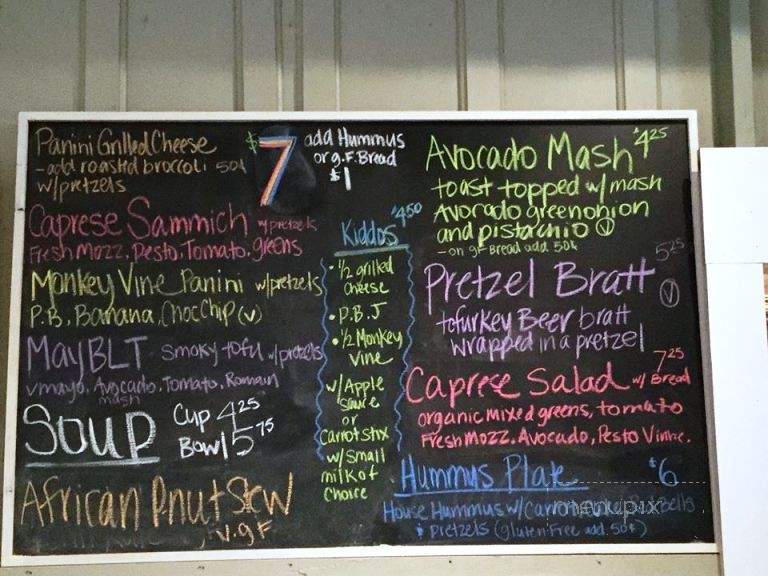 Panini Grilled Cheese
- add roasted broccoli 50¢
w/pretzels
$7
add Hummus
or g.F. Bread
$1
Caprese Sammich w/pretzels
Fresh Mozz, Pesto, Tomato, greens
Monkey Vine Panini w/pretzels
P.B, Banana, Choc Chip (v)
May BLT smoky tofu w/pretzels
vmayo, Avocado, Tomato, Romain
mash
Soup Cup 4.25
Bowl 5.75
African P.nut Stew
v.gF
$4.50
Kiddos
• 1/2 grilled
cheese
• P.B.J
• 1/2 Monkey
Vine
w/Apple
sauce
or
Carrot Stix
w/small
milk of
choice
Avocado Mash $4.25
toast topped w/ mash
Avocado green onion
and pistachio (V)
- on gF Bread add 50¢
5.25
Pretzel Bratt (V)
tofurkey Beer bratt
wrapped in a pretzel
7.25
Caprese Salad w/ Bread
organic mixed greens, tomato
Fresh Mozz, Avocado, Pesto Vinhe.
Hummus Plate $6
House Hummus w/ Carrot Bells
& pretzels (gluten Free add .50¢)
menupix